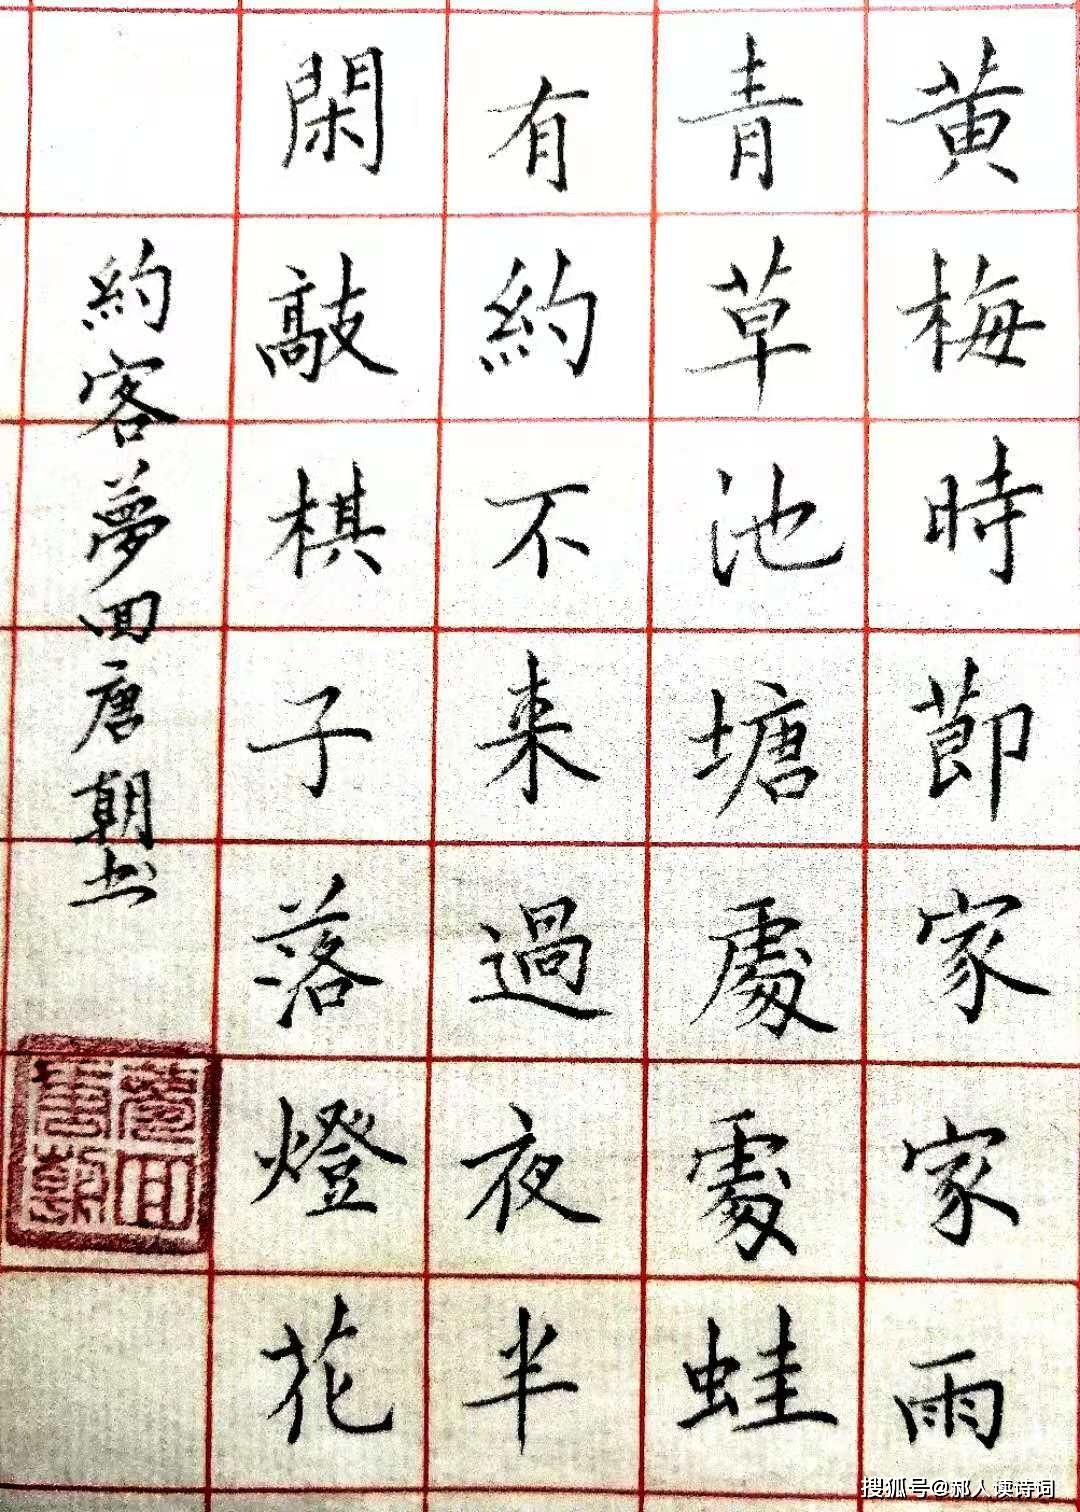 黄梅時節家家雨
青草池塘處處蛙
有約不来過夜半
閑敲棋子落燈花
約客夢回唐朝书
夢回唐朝
搜狐号@郝人读诗词